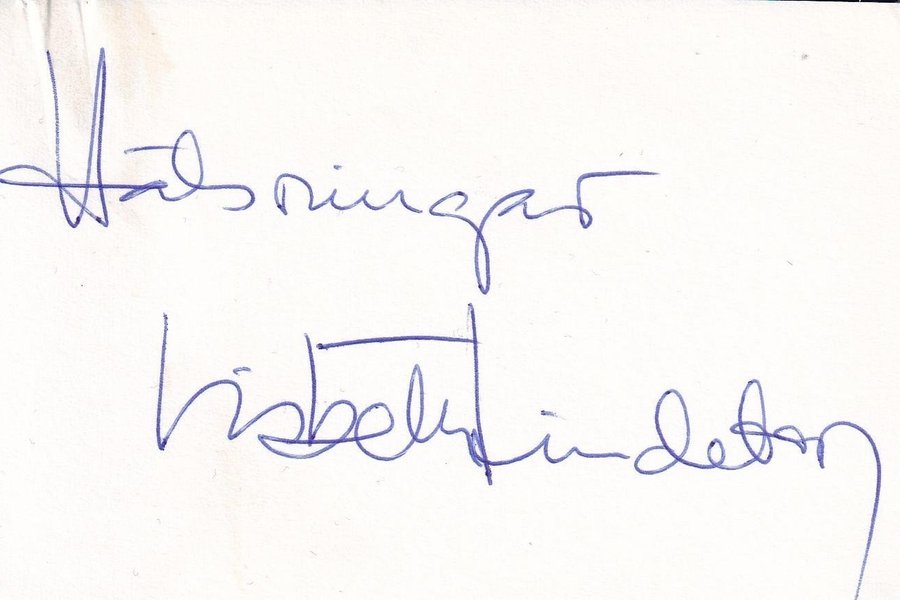 Hälsningar
Lisbeth Lindeborg